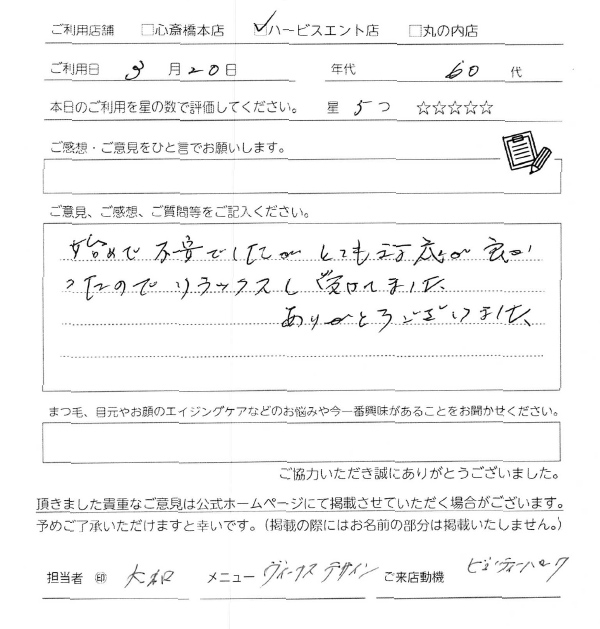 ご利用店舗 □心斎橋本店 ☑ハービスエント店 □丸の内店
ご利用日 3月20日 年代 60代
本日のご利用を星の数で評価してください。 星5つ ☆☆☆☆☆
ご感想・ご意見をひと言でお願いします。
ご意見、ご感想、ご質問等をご記入ください。
始めで不安でしたがとても対応が良か
ったのでリラックスし受けてました
ありがとうございました
まつ毛、目元やお顔のエイジングケアなどのお悩みや今一番興味があることをお聞かせください。
ご協力いただき誠にありがとうございました。
頂きました貴重なご意見は公式ホームページにて掲載させていただく場合がございます。
予めご了承いただけますと幸いです。(掲載の際にはお名前の部分は掲載いたしません。)
担当者 ㊞ 大和 メニュー ヴィーナスデザイン ご来店動機 ビューティーパーク